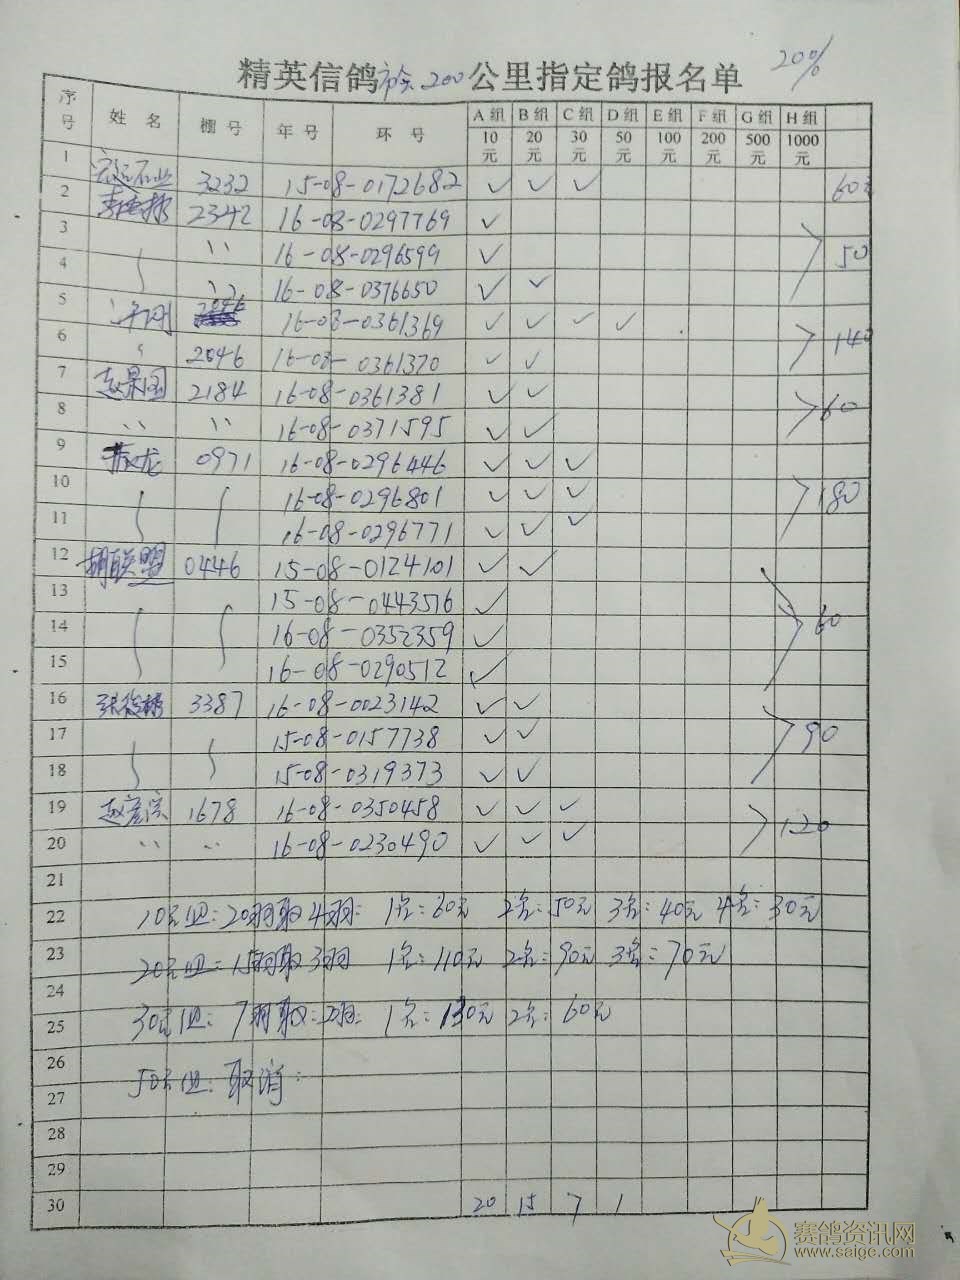 精英信鸽 200公里指定鸽报名单 20%
序号 姓名 棚号 年号 环号 A组 B组 C组 D组 E组 F组 G组 H组
10元 20元 30元 50元 100元 200元 500元 1000元
1 3232 15-08-0172682 ✓ ✓ ✓ 60元
2 2342 16-08-0297769 ✓
3 '' 16-08-0296599 ✓ 50
4 '' 16-08-0376650 ✓ ✓
5 16-08-0361369 ✓ ✓ ✓ ✓
6 2046 16-08-0361370 ✓ ✓ 140
7 赵果园 2184 16-08-0361381 ✓ ✓
8 '' '' 16-08-0371595 ✓ ✓ 60
9 龙 0971 16-08-0296446 ✓ ✓ ✓
10 16-08-0296801 ✓ ✓ ✓ 180
11 16-08-0296771 ✓ ✓ ✓
12 胡联盟 0446 15-08-0124101 ✓ ✓
13 15-08-0443576 ✓
14 16-08-0352359 ✓ 60
15 16-08-0290512 ✓
16 3387 16-08-0023142 ✓ ✓
17 15-08-0157738 ✓ ✓ 90
18 15-08-0319373 ✓ ✓
19 赵彦宗 1678 16-08-0350458 ✓ ✓ ✓
20 '' '' 16-08-0230490 ✓ ✓ ✓ 120
21
22 10元组:20羽取4羽: 1名:60元 2名:50元 3名:40元 4名:30元
23 20元组:15羽取3羽 1名:110元 2名:90元 3名:70元
24
25 30元组:7羽取:2羽: 1名:130元 2名:60元
26
27 50元组:取消:
28
29
30 20 15 7 1
赛鸽资讯网
www.saigc.com